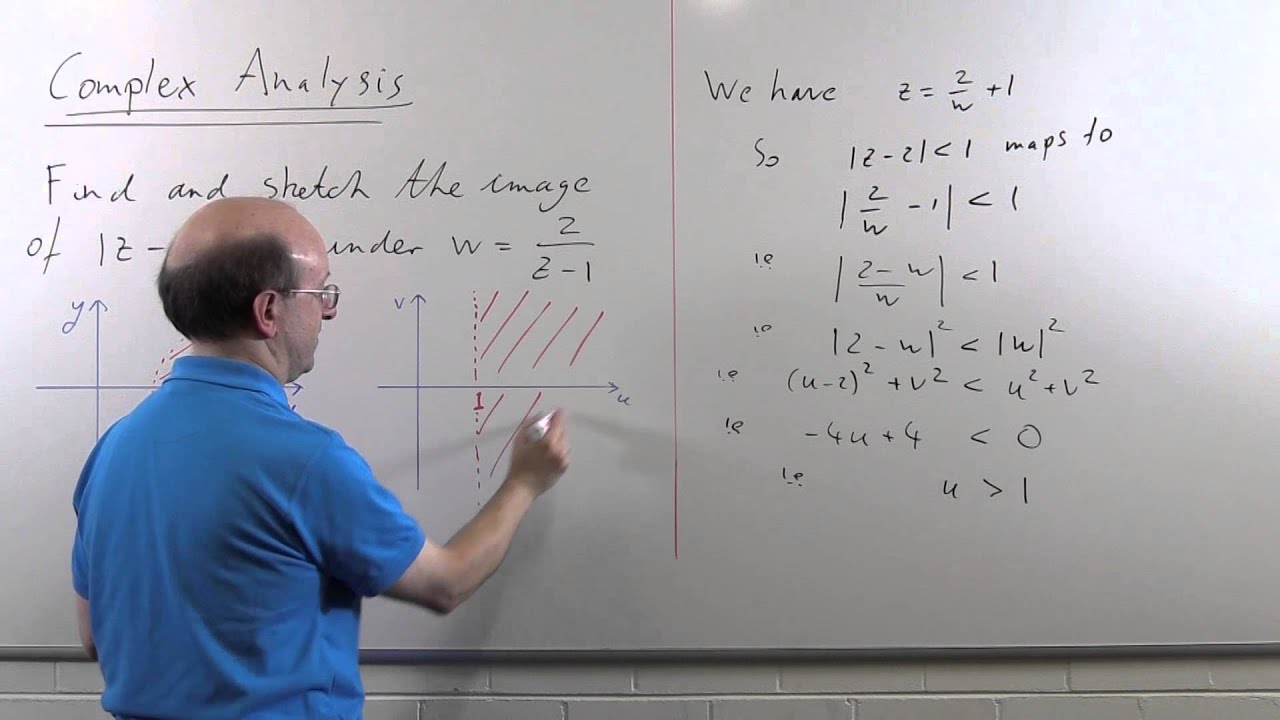 Complex Analysis
Find and sketch the image
of |z - under w = 2/(z-1)
y
v
1
u
We have z = 2/w + 1
So |z-2|<1 maps to
|2/w - 1| < 1
ie |(2-w)/w| < 1
ie |2-w|² < |w|²
ie (u-2)² + v² < u² + v²
ie -4u + 4 < 0
ie u > 1